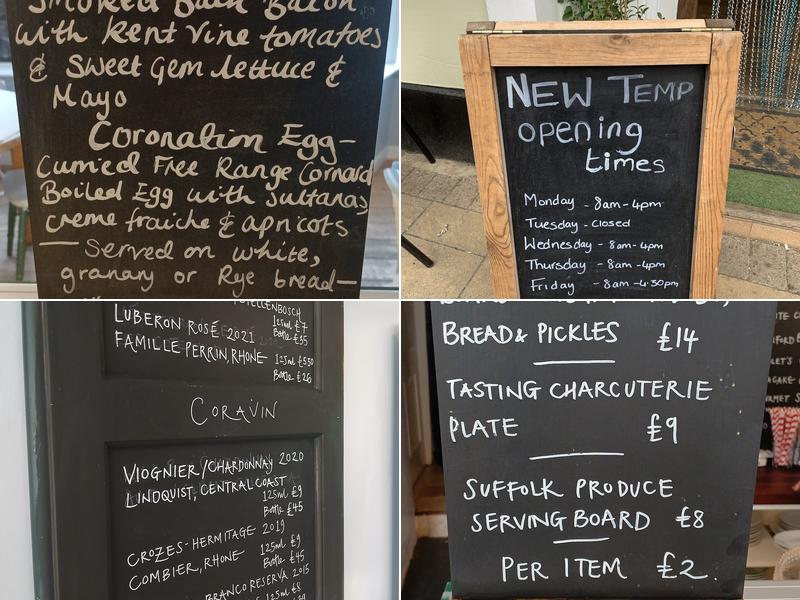 Smoked Back Bacon
with Kent Vine tomatoes
& Sweet Gem lettuce &
Mayo
Coronation Egg-
Curried Free Range Cornard
Boiled Egg with Sultanas
creme fraiche & apricots
— Served on white,
granary or Rye bread —
NEW TEMP
opening
times
Monday - 8am-4pm
Tuesday - closed
Wednesday - 8am-4pm
Thursday - 8am-4pm
Friday - 8am-4:30pm
STELLENBOSCH
125ml £7
LUBERON ROSÉ 2021 Bottle £35
FAMILLE PERRIN, RHONE 125ml £5.50
Bottle £26
CORAVIN
VIOGNIER/CHARDONNAY 2020
LINDQUIST, CENTRAL COAST
125ml £9
Bottle £45
CROZES-HERMITAGE 2019
COMBIER, RHONE 125ml £9
Bottle £45
BRANCO RESERVA 2015
125ml £8
BREAD & PICKLES £14
TASTING CHARCUTERIE
PLATE £9
SUFFOLK PRODUCE
SERVING BOARD £8
PER ITEM £2.